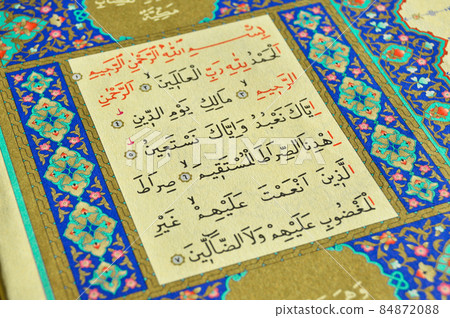 بِسْمِ اللّٰهِ الرَّحْمٰنِ الرَّحِيمِ
اَلْحَمْدُ لِلّٰهِ رَبِّ الْعَالَمِينَ ۙ ﴿٢﴾ اَلرَّحْمٰنِ
الرَّحِيمِ ۙ ﴿٣﴾ مَالِكِ يَوْمِ الدِّينِ ﴿٤﴾
اِيَّاكَ نَعْبُدُ وَاِيَّاكَ نَسْتَعِينُ ﴿٥﴾
اِهْدِنَا الصِّرَاطَ الْمُسْتَقِيمَ ۙ ﴿٦﴾ صِرَاطَ
الَّذِينَ اَنْعَمْتَ عَلَيْهِمْ ۙ غَيْرِ
الْمَغْضُوبِ عَلَيْهِمْ وَلَا الضَّٓالِّينَ ﴿٧﴾
PIXTA
84872088